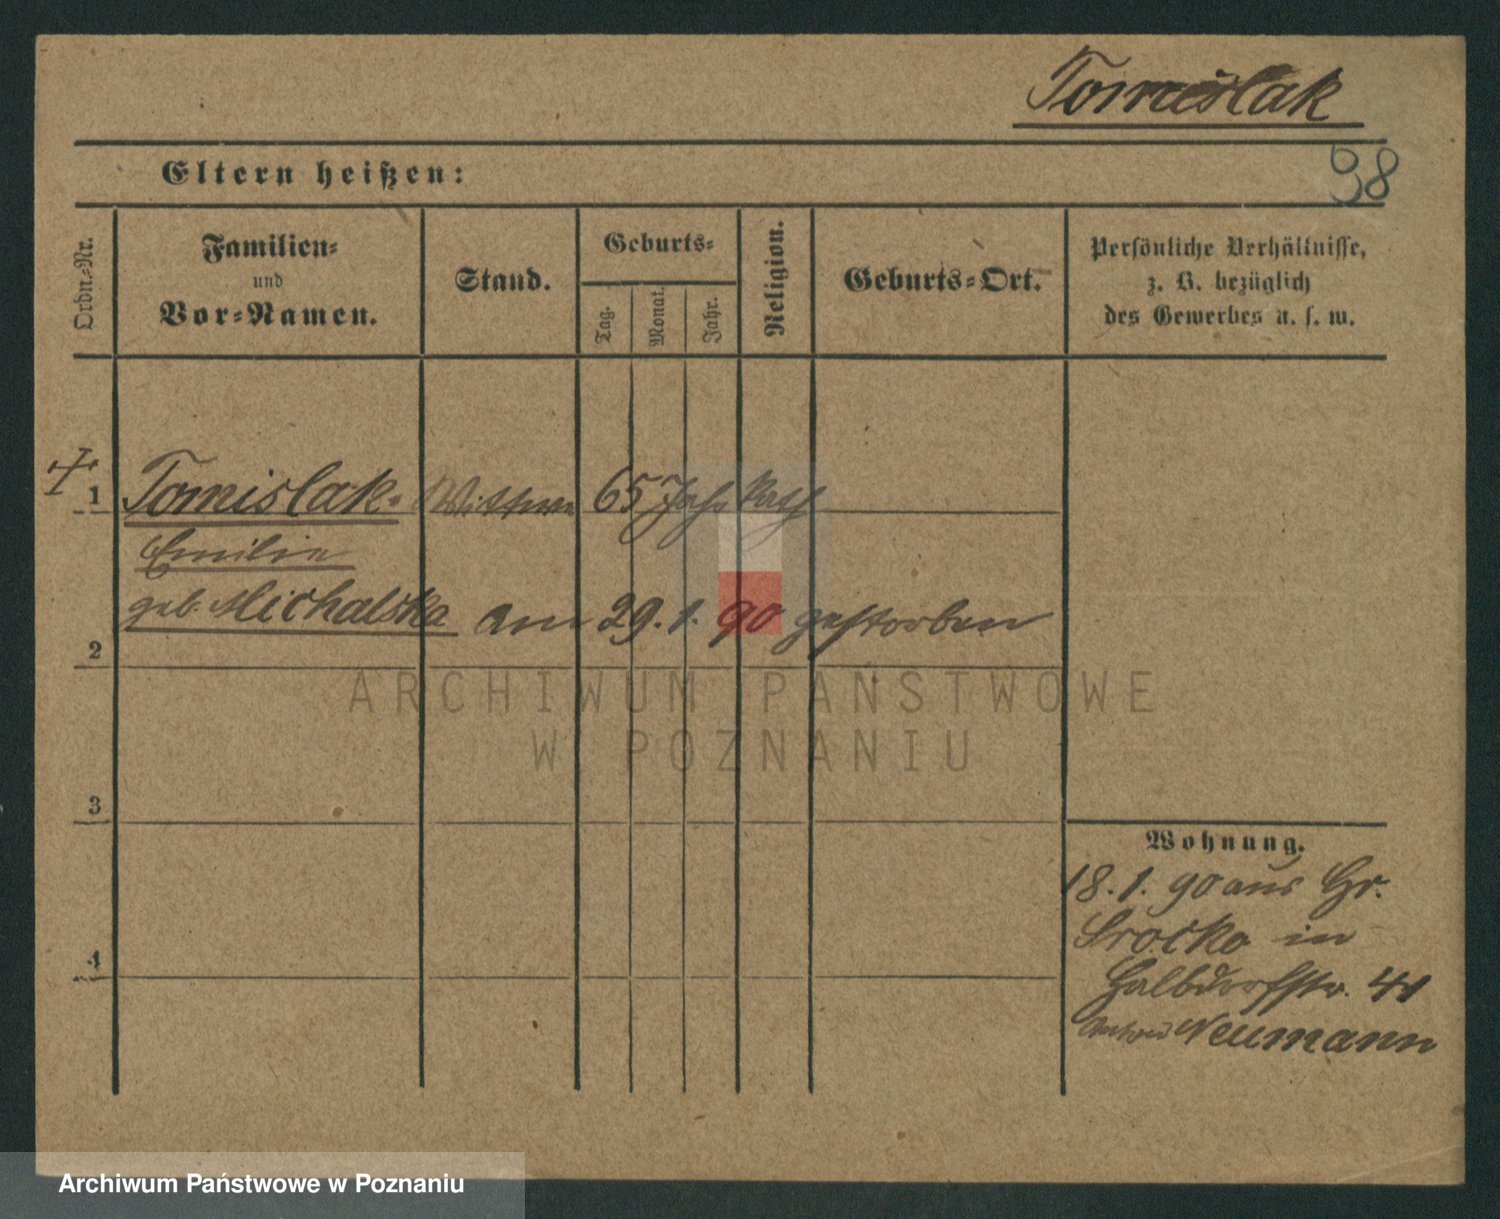 Tomislak
98
Eltern heißen:
Ordn.=Nr.
Familien=
und
Vor=Namen.
Stand.
Geburts=
Tag.
Monat.
Jahr.
Religion.
Geburts=Ort.
Persönliche Verhältnisse,
z. B. bezüglich
des Gewerbes u. s. w.
1 Tomislak. Wittwe 65 Jahr kath
Emilie
geb. Michalska am 29. 1. 90 gestorben
2
3
4
Wohnung.
18. 1. 90 aus Gr.
Srocko in
Halbdorfstr. 41
Neumann
ARCHIWUM PAŃSTWOWE
W POZNANIU
Archiwum Państwowe w Poznaniu